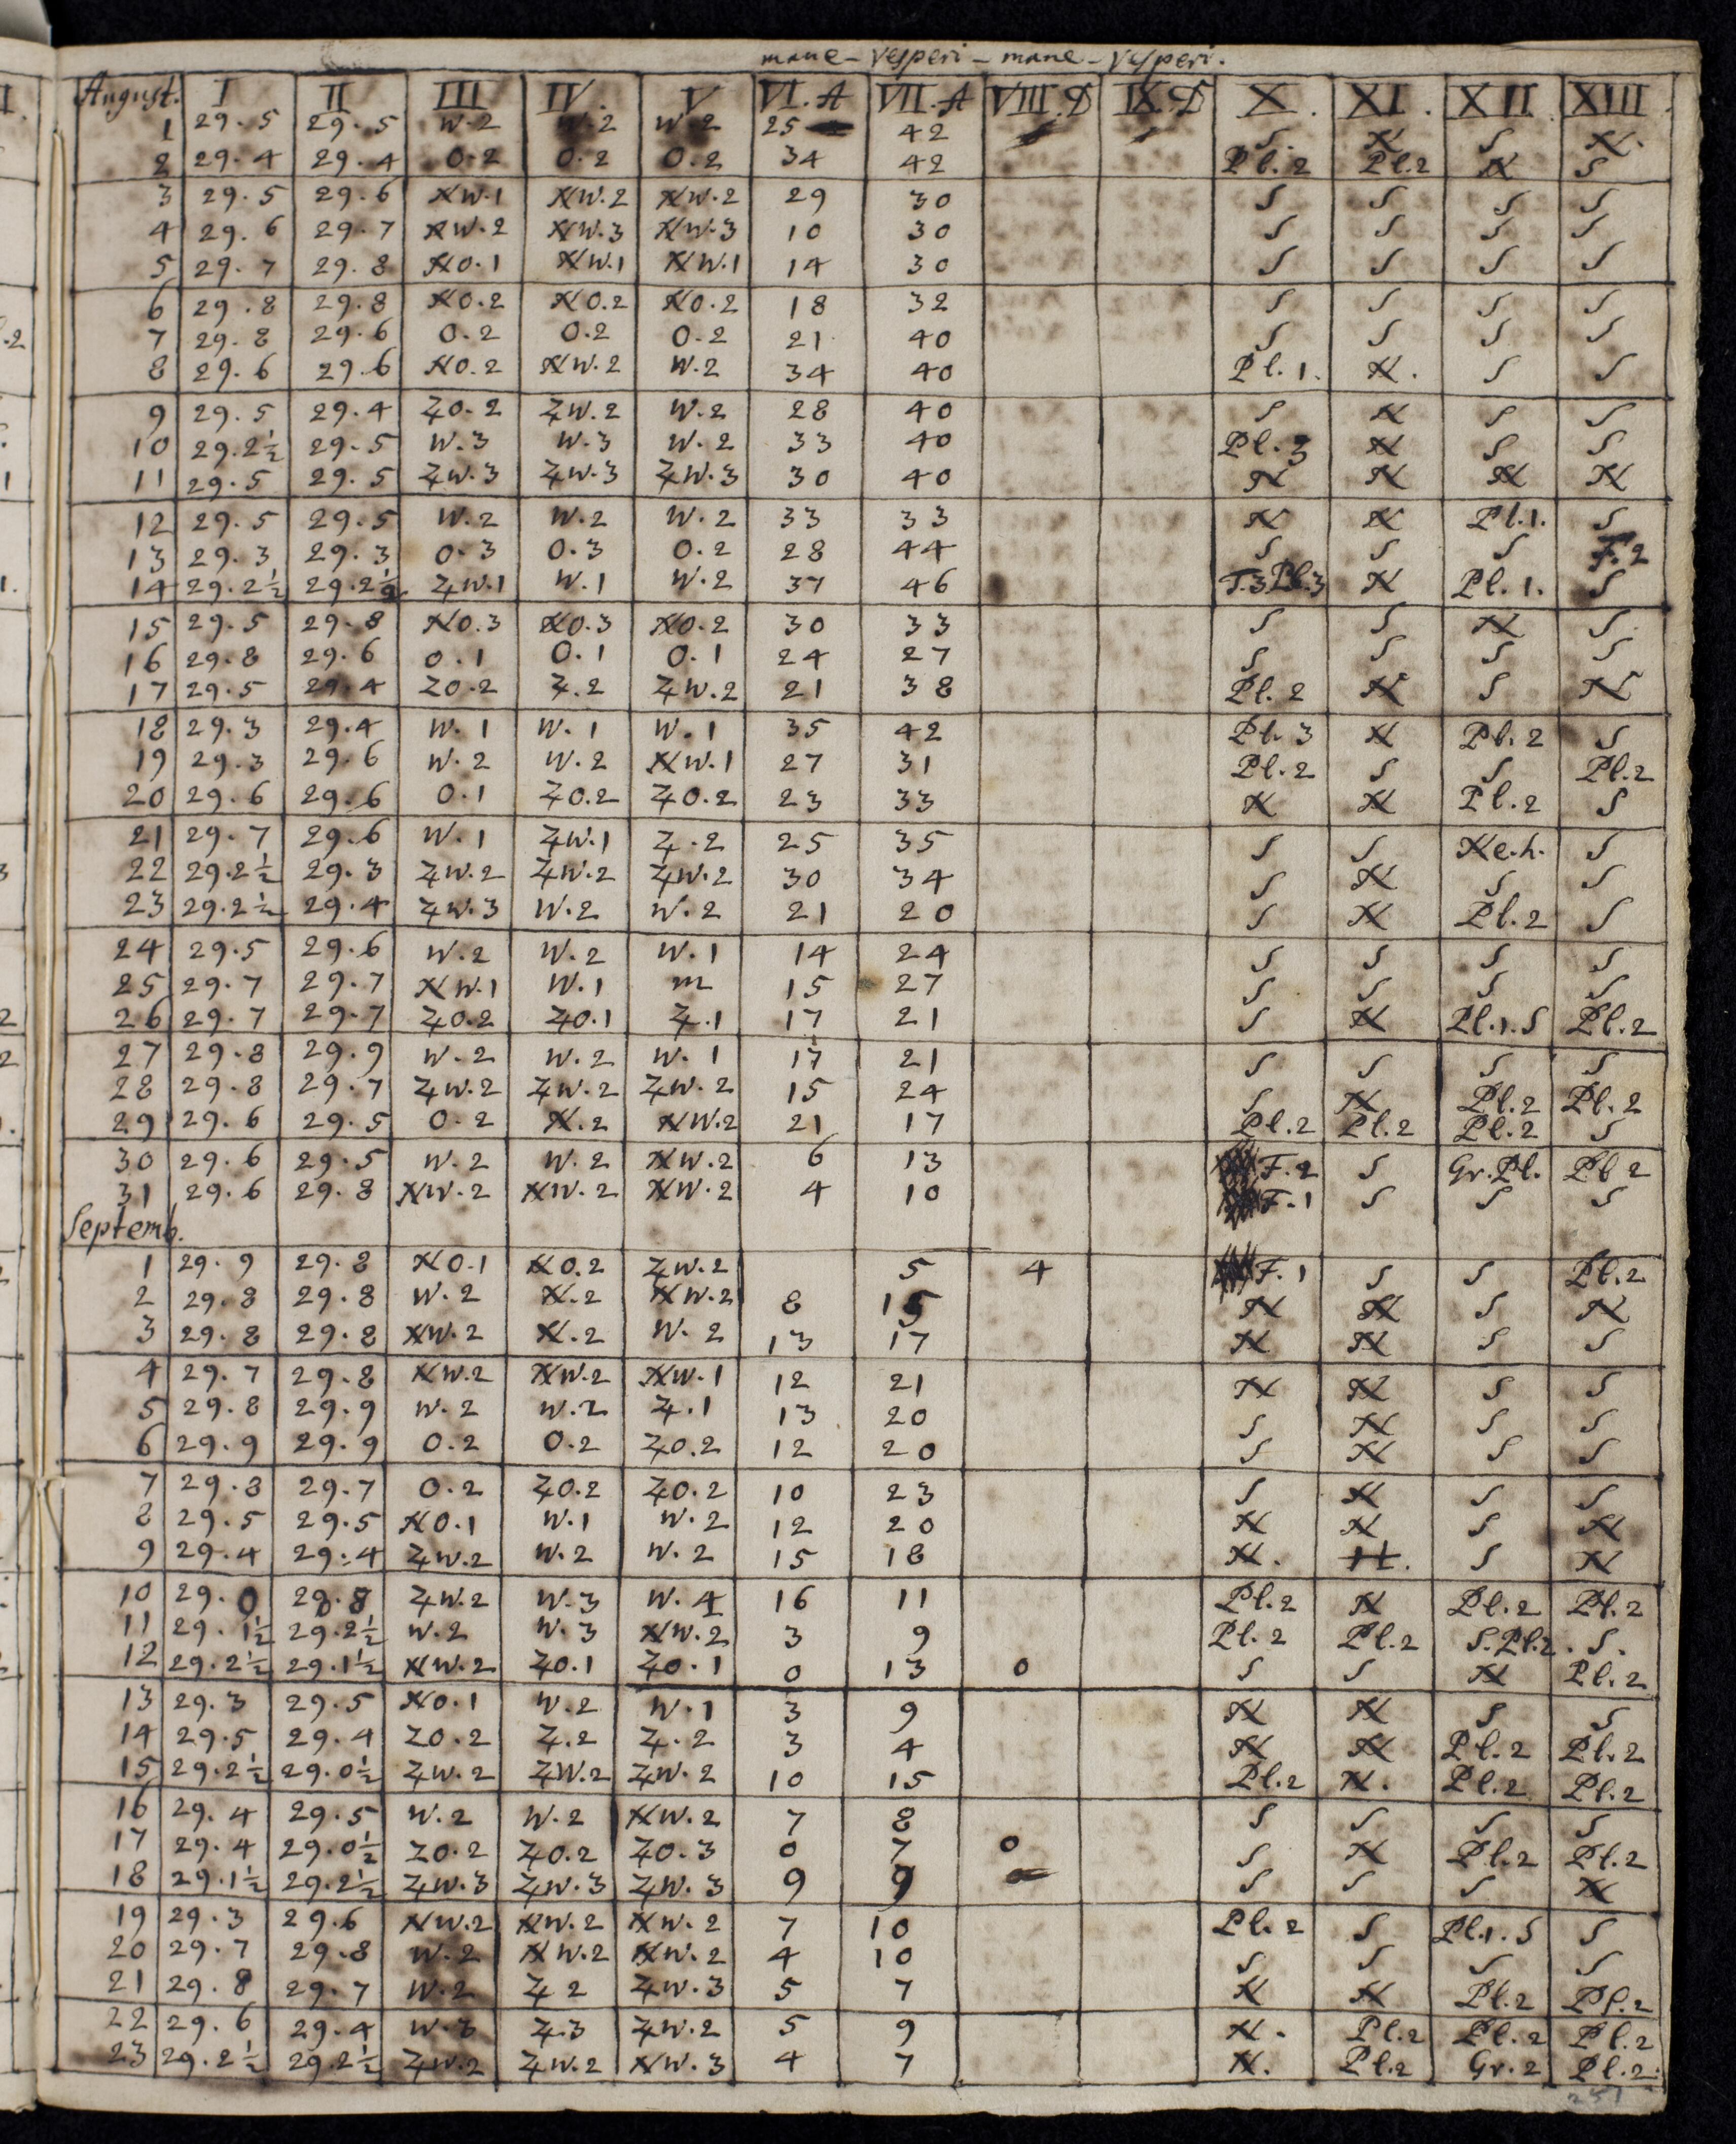 mane - Vesperi - mane - Vesperi.
August. I II III IV. V VI.A VII.A VIII.D IX.D X. XI. XII. XIII.
1 29.5 29.5 W.2 W.2 W.2 25 42 S. N S N.
2 29.4 29.4 O.2 O.2 O.2 34 42 Pl.2 Pl.2 N S
3 29.5 29.6 NW.1 NW.2 NW.2 29 30 S S S S
4 29.6 29.7 NW.2 NW.3 NW.3 10 30 S S S S
5 29.7 29.8 NO.1 NW.1 NW.1 14 30 S S S S
6 29.8 29.8 NO.2 NO.2 NO.2 18 32 S S S S
7 29.8 29.6 O.2 O.2 O.2 21 40 S S S S
8 29.6 29.6 NO.2 NW.2 W.2 34 40 Pl.1. N. S S
9 29.5 29.4 ZO.2 ZW.2 W.2 28 40 S N S S
10 29.2½ 29.5 W.3 W.3 W.2 33 40 Pl.3 N S S
11 29.5 29.5 ZW.3 ZW.3 ZW.3 30 40 N N N N
12 29.5 29.5 W.2 W.2 W.2 33 33 N N Pl.1. S
13 29.3 29.3 O.3 O.3 O.2 28 44 S S S F.2
14 29.2½ 29.2½ ZW.1 W.1 W.2 37 46 T.3 Pl.3 N Pl.1. S
15 29.5 29.8 NO.3 NO.3 NO.2 30 33 S S N S
16 29.8 29.6 O.1 O.1 O.1 24 27 S S S S
17 29.5 29.4 ZO.2 Z.2 ZW.2 21 38 Pl.2 N S N
18 29.3 29.4 W.1 W.1 W.1 35 42 Pl.3 N Pl.2 S
19 29.3 29.6 W.2 W.2 NW.1 27 31 Pl.2 S S Pl.2
20 29.6 29.6 O.1 ZO.2 ZO.2 23 33 N N Pl.2 S
21 29.7 29.6 W.1 ZW.1 Z.2 25 35 S S Ne.h. S
22 29.2½ 29.3 ZW.2 ZW.2 ZW.2 30 34 S N S S
23 29.2½ 29.4 ZW.3 W.2 W.2 21 20 S N Pl.2 S
24 29.5 29.6 W.2 W.2 W.1 14 24 S S S S
25 29.7 29.7 NW.1 W.1 m 15 27 S S S S
26 29.7 29.7 ZO.2 ZO.1 Z.1 17 21 S N Pl.1.S Pl.2
27 29.8 29.9 W.2 W.2 W.1 17 21 S S S S
28 29.8 29.7 ZW.2 ZW.2 ZW.2 15 24 S N Pl.2 Pl.2
29 29.6 29.5 O.2 N.2 NW.2 21 17 Pl.2 Pl.2 Pl.2 S
30 29.6 29.5 W.2 W.2 NW.2 6 13 F.2 S Gr.Pl. Pl 2
31 29.6 29.8 NW.2 NW.2 NW.2 4 10 F.1 S S S
Septemb.
1 29.9 29.8 NO.1 NO.2 ZW.2 5 4 F.1 S S Pl.2
2 29.8 29.8 W.2 N.2 NW.2 8 15 N N S N
3 29.8 29.8 NW.2 N.2 W.2 13 17 N N S S
4 29.7 29.8 NW.2 NW.2 NW.1 12 21 N N S S
5 29.8 29.9 W.2 W.2 Z.1 13 20 S N S S
6 29.9 29.9 O.2 O.2 ZO.2 12 20 S N S S
7 29.8 29.7 O.2 ZO.2 ZO.2 10 23 S N S S
8 29.5 29.5 NO.1 W.1 W.2 12 20 N N S N
9 29.4 29.4 ZW.2 W.2 W.2 15 18 N. N. S N
10 29.0 28.8 ZW.2 W.3 W.4 16 11 Pl.2 N Pl.2 Pl.2
11 29.1½ 29.2½ W.2 W.3 NW.2 3 9 Pl.2 Pl.2 S.Pl.2. S.
12 29.2½ 29.1½ NW.2 ZO.1 ZO.1 0 13 0 S S N Pl.2
13 29.3 29.5 NO.1 W.2 W.1 3 9 N N S S
14 29.5 29.4 ZO.2 Z.2 Z.2 3 4 N N Pl.2 Pl.2
15 29.2½ 29.0½ ZW.2 ZW.2 ZW.2 10 15 Pl.2 N. Pl.2 Pl.2
16 29.4 29.5 W.2 W.2 NW.2 7 8 S S S S
17 29.4 29.0½ ZO.2 ZO.2 ZO.3 0 7 0 S N Pl.2 Pl.2
18 29.1½ 29.2½ ZW.3 ZW.3 ZW.3 9 9 S S S N
19 29.3 29.6 NW.2 NW.2 NW.2 7 10 Pl.2 S Pl.1.S S
20 29.7 29.8 W.2 NW.2 NW.2 4 10 S S S S
21 29.8 29.7 W.2 Z 2 ZW.3 5 7 N N Pl.2 Pl.2
22 29.6 29.4 W.3 Z.3 ZW.2 5 9 N. Pl.2 Pl.2 Pl.2
23 29.2½ 29.2½ ZW.2 ZW.2 NW.3 4 7 N. Pl.2 Gr.2 Pl.2.
251